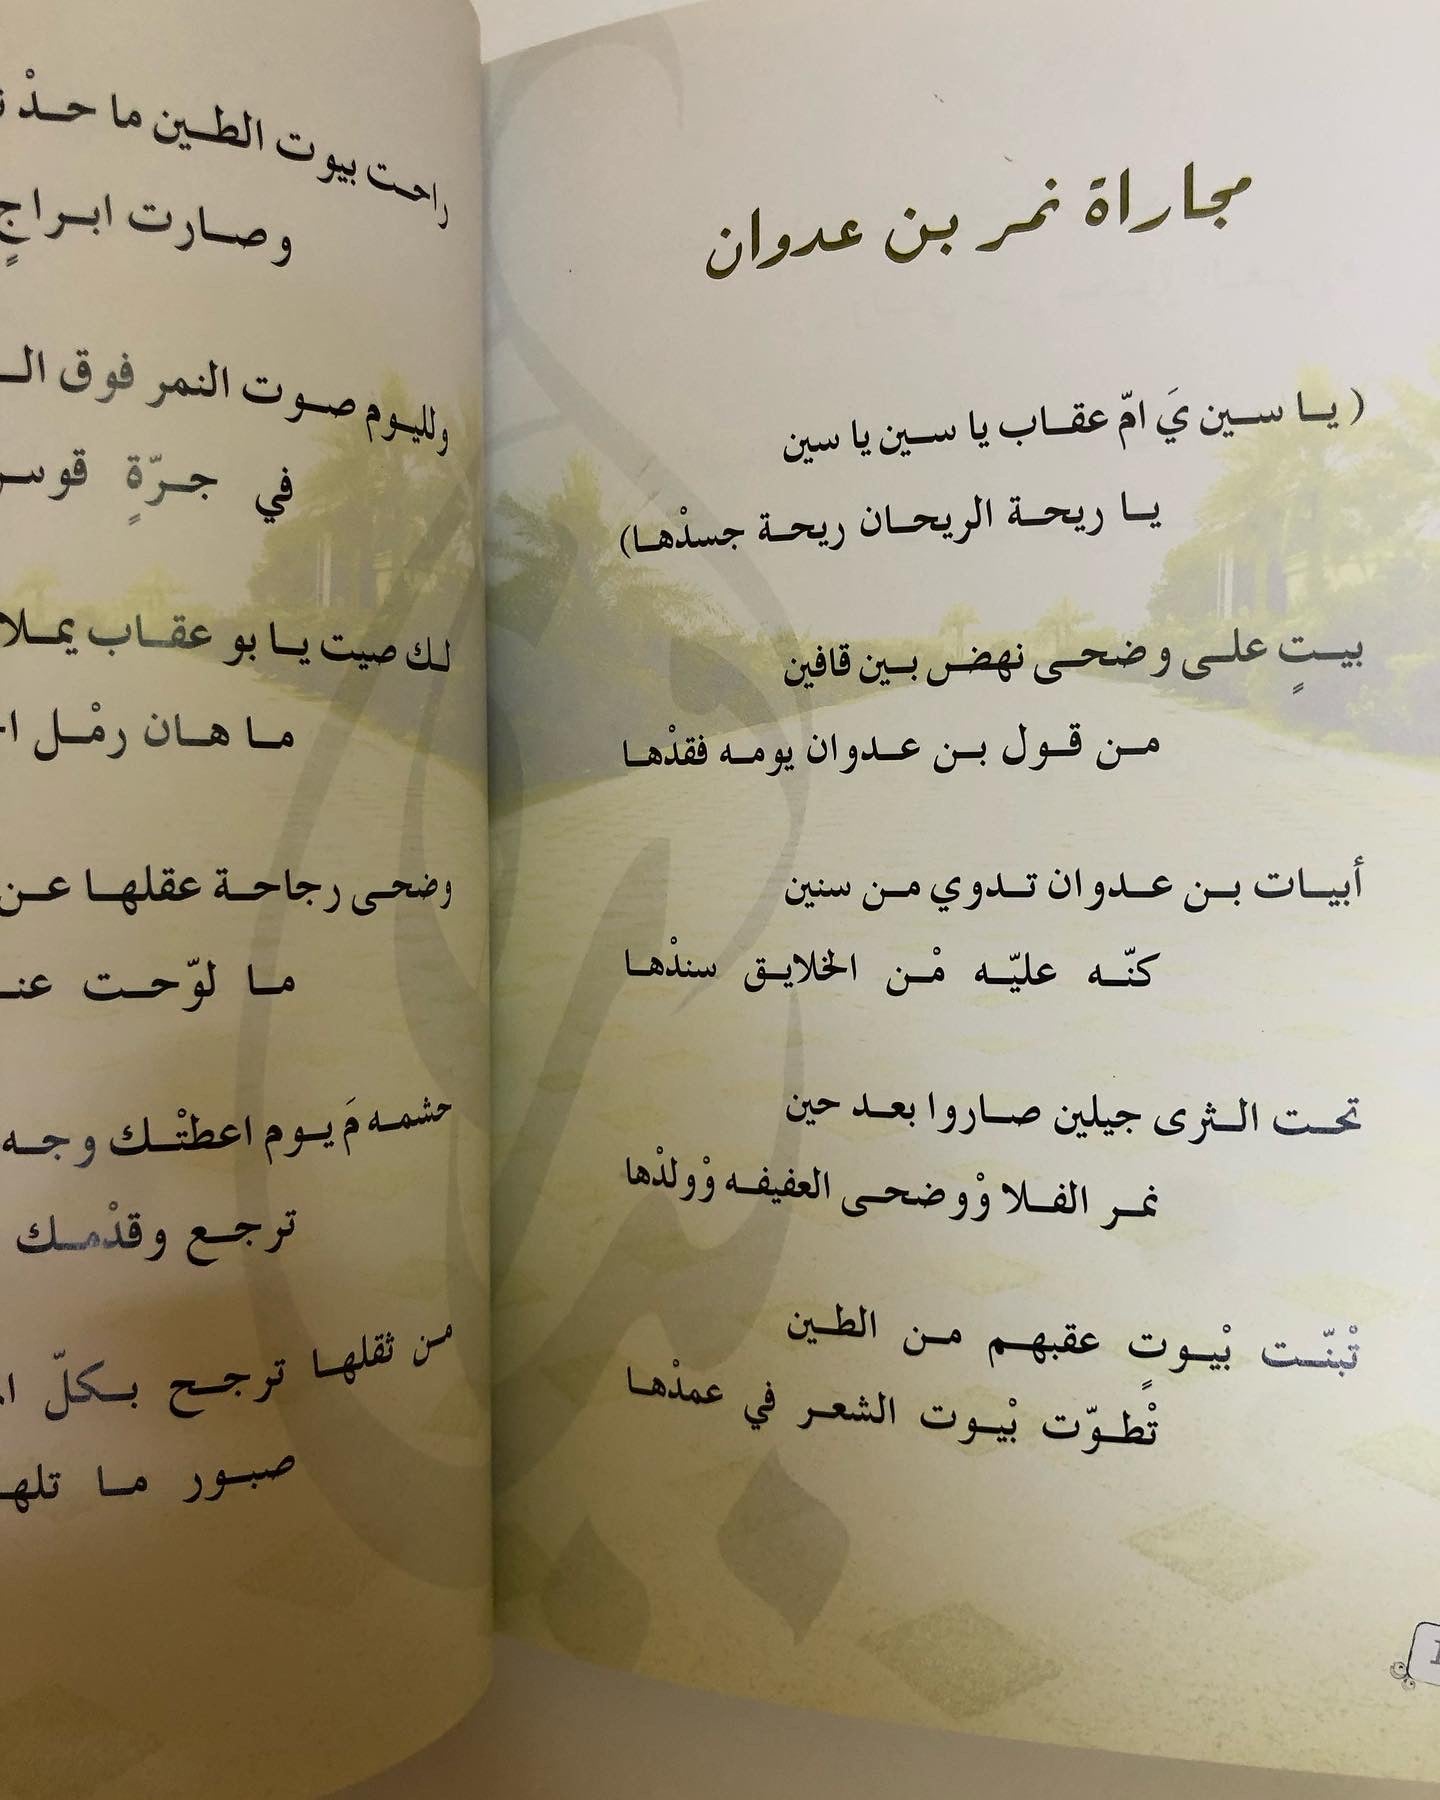 مجاراة نمر بن عدوان
( يا سين يَ امّ عقاب يا سين يا سين
يا ريحة الريحان ريحة جسدْها)
بيتٍ على وضحى نهض بين قافين
من قول بن عدوان يومه فقدْها
أبيات بن عدوان تدوي من سنين
كنّه عليّه مْن الخلايق سندْها
تحت الثرى جيلين صاروا بعد حين
نمر الفلا وْوضحى العفيفه وْولدْها
تْبنّت بْيوتٍ عقبهم من الطين
تْطوّت بْيوت الشعر في عمدْها
راحت بيوت الطين ما حدْ
وصارت ابراجٍ
ولليوم صوت النمر فوق
في جرّةٍ
لك صيت يا بو عقاب يملا
ما هان رمْل
وضحى رجاحة عقلها عن
ما لوّحت
حشمه مَ يوم اعطتْك وجه
ترجع وقدْمك
من ثقلها ترجح بكلّ
صبور ما